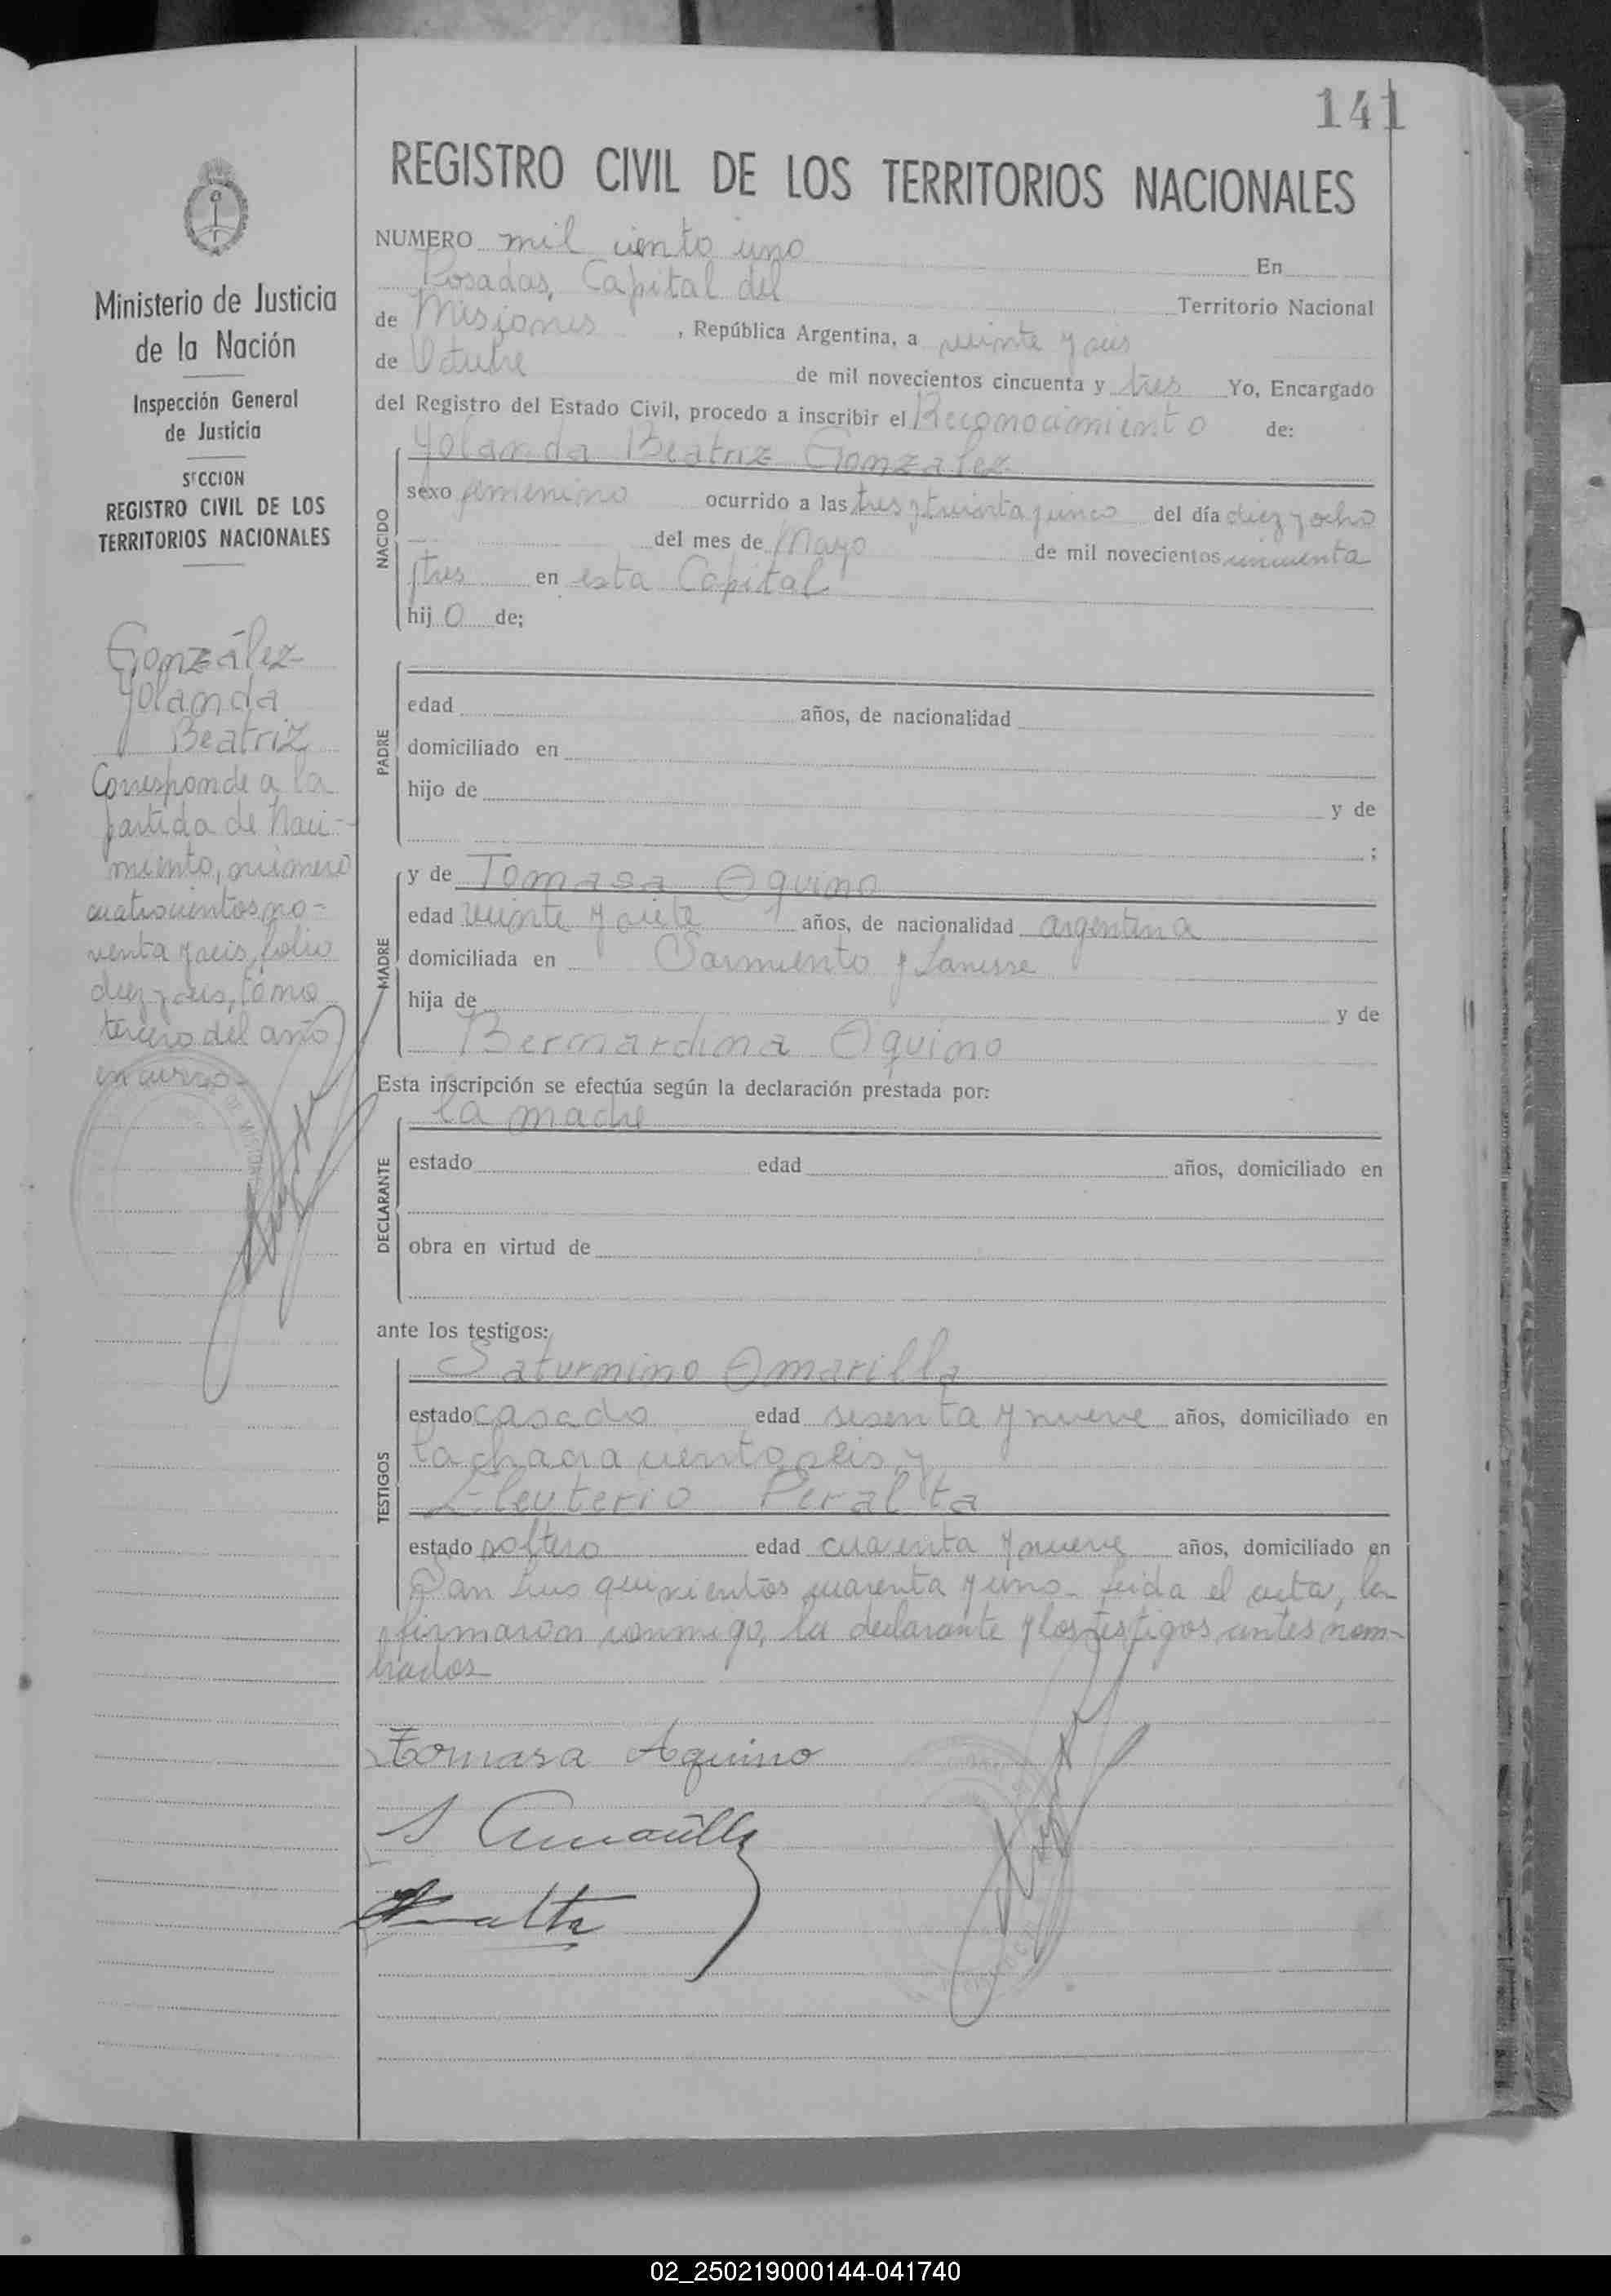 141
REGISTRO CIVIL DE LOS TERRITORIOS NACIONALES
Ministerio de Justicia
de la Nación
Inspección General
de Justicia
SECCION
REGISTRO CIVIL DE LOS
TERRITORIOS NACIONALES
González
Yolanda
Beatriz
Corresponde a la
partida de Naci-
miento, número
cuatrocientos no-
venta y seis, folio
diez y seis, tomo
tercero del año
en curso.-
NUMERO mil ciento uno En
Posadas, Capital del Territorio Nacional
de Misiones, República Argentina, a veinte y seis
de Octubre de mil novecientos cincuenta y tres Yo, Encargado
del Registro del Estado Civil, procedo a inscribir el Reconocimiento de:
NACIDO
Yolanda Beatriz Gonzalez
sexo femenino ocurrido a las tres y treinta y cinco del día diez y ocho
del mes de Mayo de mil novecientos cincuenta
y tres en esta Capital
hij o de;
PADRE
edad años, de nacionalidad
domiciliado en
hijo de y de
;
MADRE
y de Tomasa Aquino
edad veinte y siete años, de nacionalidad argentina
domiciliada en Sarmiento y
hija de y de
Bernardina Aquino
Esta inscripción se efectúa según la declaración prestada por:
DECLARANTE
la madre
estado edad años, domiciliado en
obra en virtud de
ante los testigos:
TESTIGOS
Saturnino Amarilla
estado casado edad sesenta y nueve años, domiciliado en
la chacra ciento seis, y
Eleuterio Peralta
estado soltero edad cuarenta y nueve años, domiciliado en
San Luis quinientos cuarenta y uno.- Leida el acta, la
firmaron conmigo, la declarante y los testigos antes nom-
brados
Tomasa Aquino
S Amarilla
Peralta
02_250219000144-041740